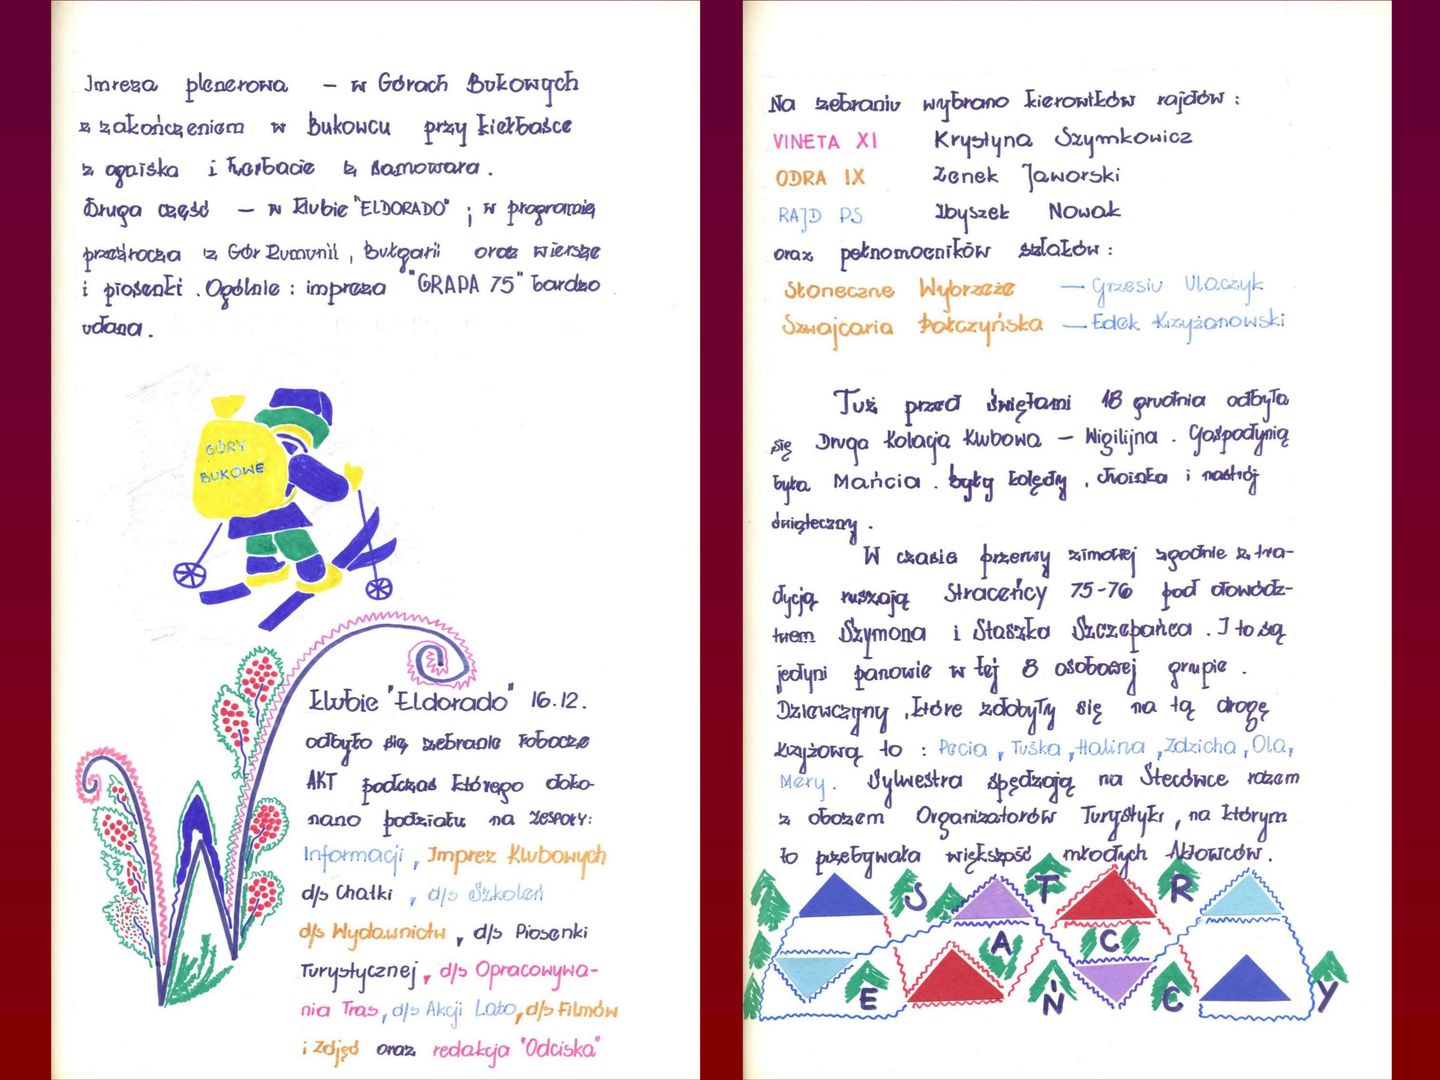 Impreza plenerowa – w Górach Bukowych
z zakończeniem w Bukowcu przy kiełbasce
z ogniska i herbacie z samowara.
Druga część – w klubie "ELDORADO"; w programie
przeźrocza z Gór Rumunii, Bułgarii oraz wiersze
i piosenki. Ogólnie: impreza "GRAPA 75" bardzo
udana.
GÓRY
BUKOWE
W klubie "Eldorado" 16.12.
odbyło się zebranie robocze
AKT podczas którego doko-
nano podziału na zespoły:
Informacji, Imprez Klubowych
d/s Chatki, d/s Szkoleń
d/s Wydawnictw, d/s Piosenki
Turystycznej, d/s Opracowywa-
nia Tras, d/s Akcji Lato, d/s Filmów
i Zdjęć oraz redakcja "Odciska"
Na zebraniu wybrano kierowików rajdów:
VINETA XI Krystyna Szymkowicz
ODRA IX Zenek Jaworski
RAJD PS Zbyszek Nowak
oraz pełnomocników szlaków:
Słoneczne Wybrzeże – Grzesiu Ulaczyk
Szwajcaria Połczyńska – Edek Krzyżanowski
Tuż przed świętami 18 grudnia odbyła
się Druga Kolacja Klubowa – Wigilijna. Gospodynią
była Mańcia. były kolędy, choinka i nastrój
świąteczny.
W czasie przerwy zimowej zgodnie z tra-
dycją ruszają Straceńcy 75-76 pod dowódz-
twem Szymona i Staszka Szczepańca. I to są
jedyni panowie w tej 8 osobowej grupie.
Dziewczyny, które zdobyły się na tą drogę
krzyżową to: Pecia, Tuśka, Halina, Zdzicha, Ola,
Mery. Sylwestra spędzają na Stecówce razem
z obozem Organizatorów Turystyki, na którym
to przebywała większość młodych Aktowców.
STRACEŃCY